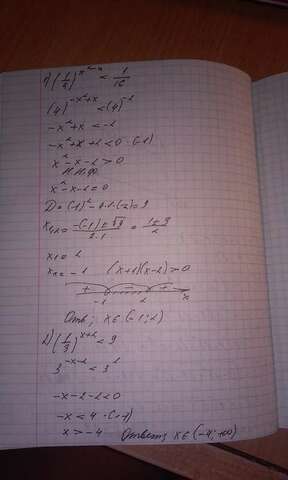 1) (1/4)^(x²-x) < 1/16
(4)^(-x²+x) < (4)^(-2)
-x²+x < -2
-x²+x+2 < 0 ·(-1)
x²-x-2 > 0
x²-x-2=0
D=(-1)²-4·1·(-2)=9
x1,2 = (-(-1)±√9)/(2·1) = (1±3)/2
x1 = 2
x2 = -1 (x+1)(x-2)>0
+ - +
-1 2 x
Отв; x∈(-1;2)
2) (1/3)^(x+2) < 9
3^(-x-2) < 3^2
-x-2-2<0
-x<4 ·(-1)
x>-4 Ответ; x∈(-4;+∞)